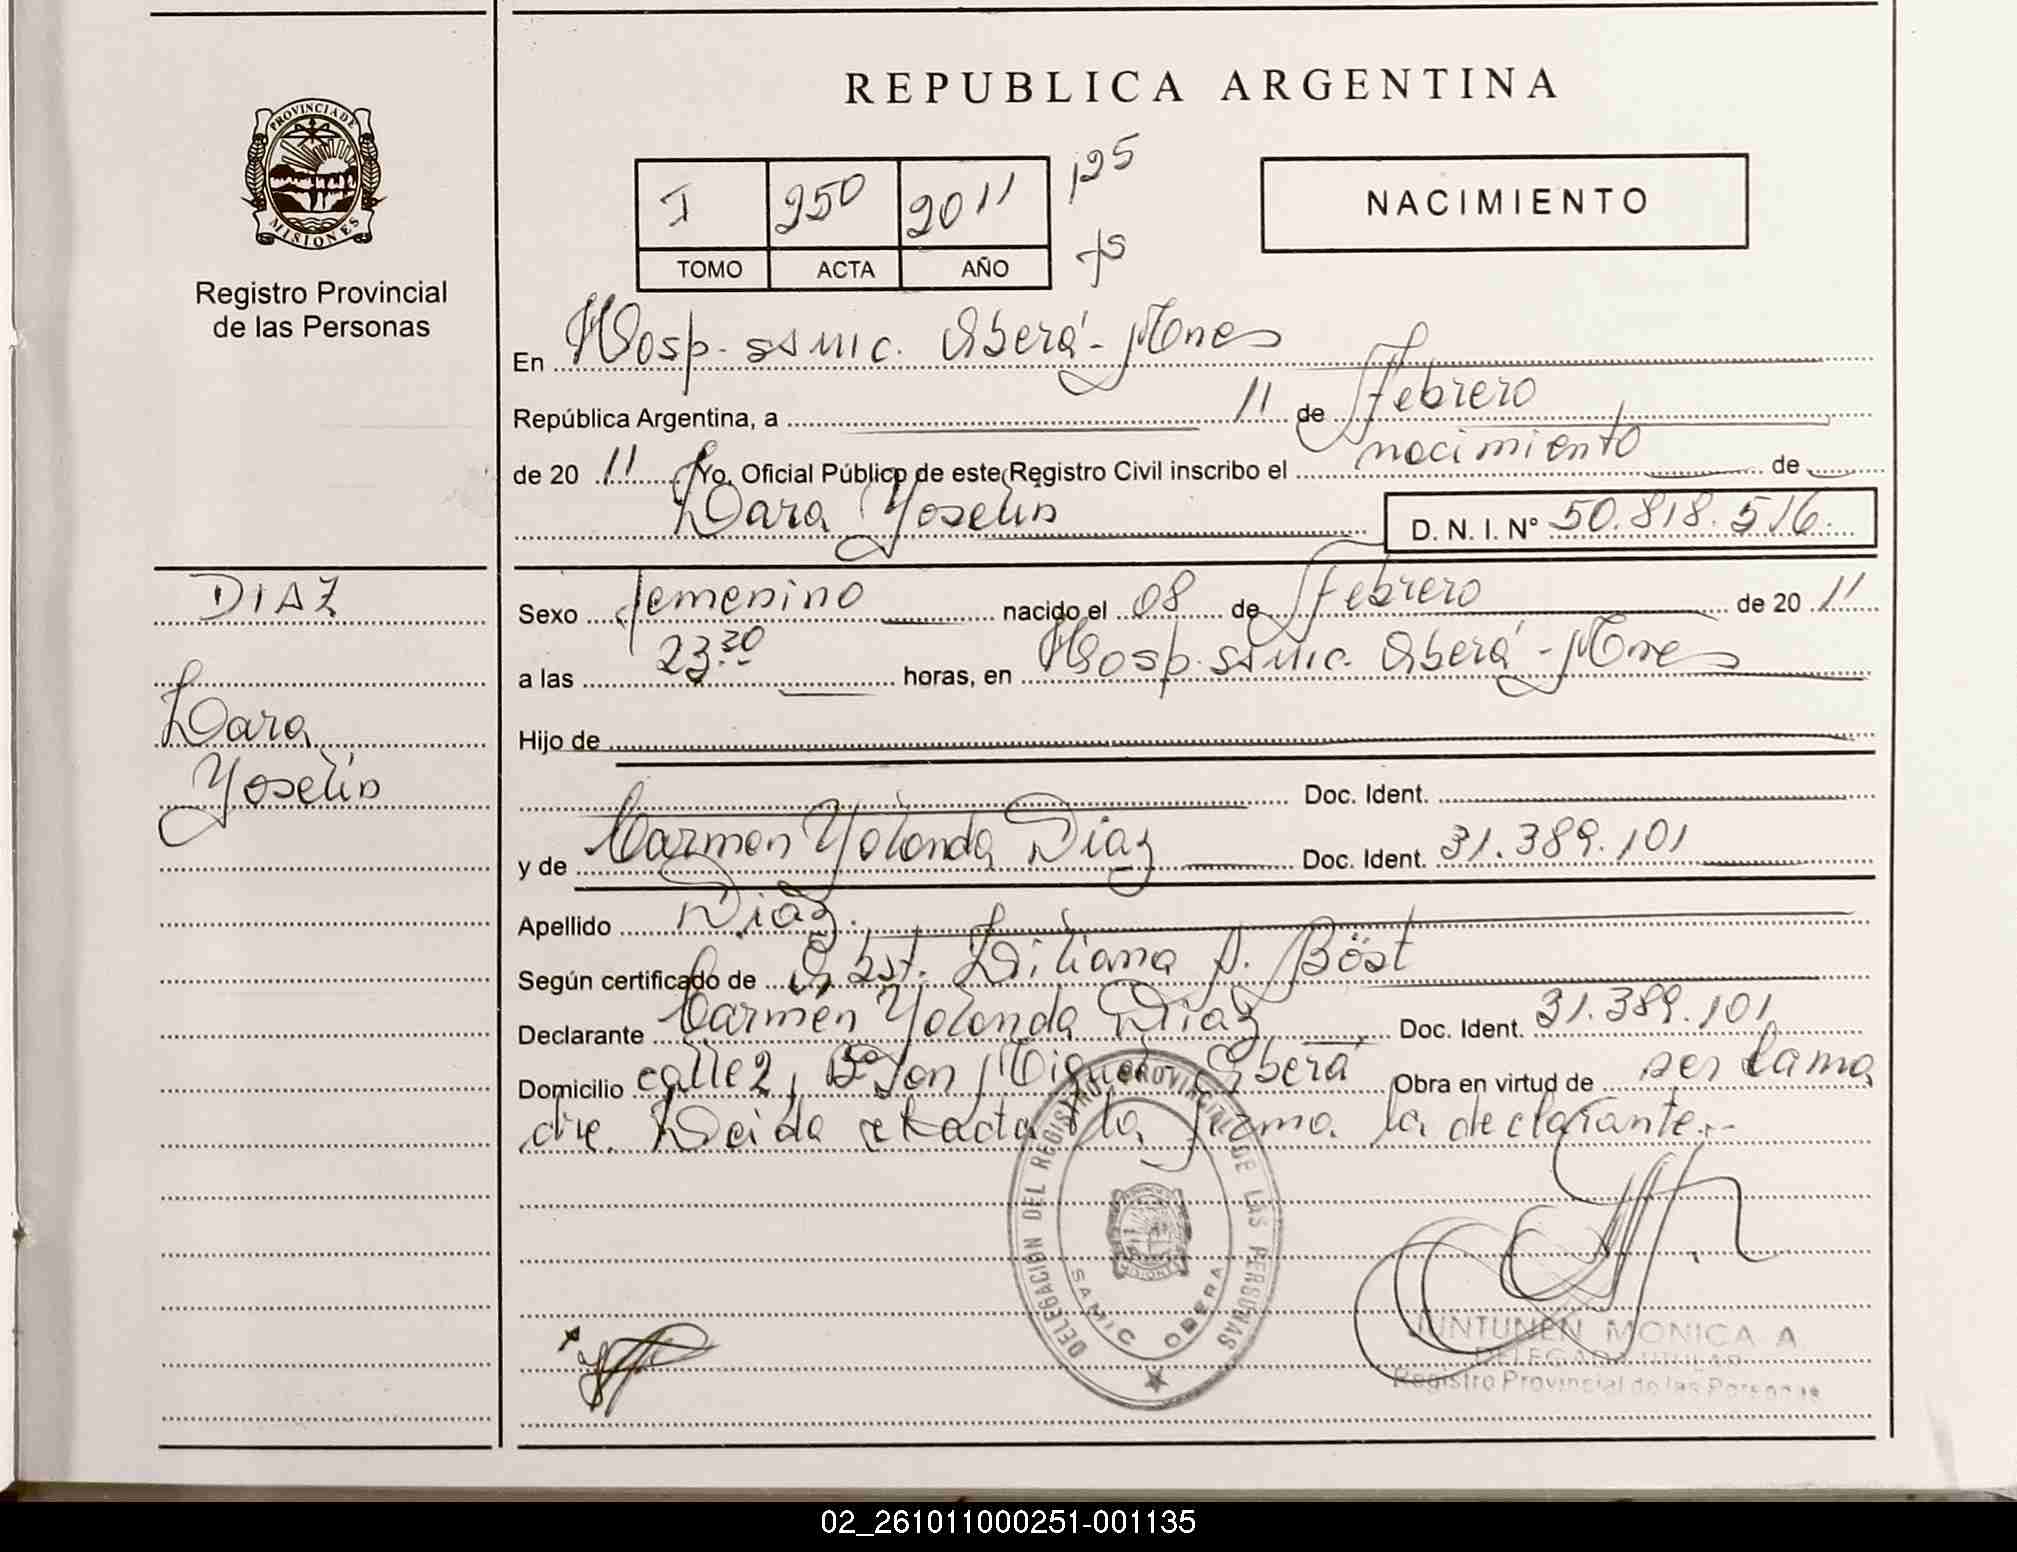 PROVINCIA DE
MISIONES
Registro Provincial
de las Personas
REPUBLICA ARGENTINA
I 250 2011 125
TOMO ACTA AÑO
NACIMIENTO
En Hosp. SSMIC. Oberá - Mnes
República Argentina, a 11 de Febrero
de 20 11 Yo, Oficial Público de este Registro Civil inscribo el nacimiento de
Lara Yoselin D. N. I. N° 50.818.516.
DIAZ
Lara
Yoselin
Sexo femenino nacido el 08 de Febrero de 20 11
a las 23.30 horas, en Hosp. SSMIC. Oberá - Mnes
Hijo de
Doc. Ident.
y de Carmen Yolanda Diaz Doc. Ident. 31.389.101
Apellido Diaz.
Según certificado de Obst. Liliana A. Böst
Declarante Carmen Yolanda Diaz Doc. Ident. 31.389.101
Domicilio calle 2, Bº San Miguel - Oberá Obra en virtud de ser la ma
dre. Leida el acta la firma la declarante.-
DELEGACION DEL REGISTRO PROVINCIAL DE LAS PERSONAS
SAMIC OBERA
MISIONES
JUNTUNEN MONICA A
DELEGADA TITULAR
Registro Provincial de las Personas
02_261011000251-001135